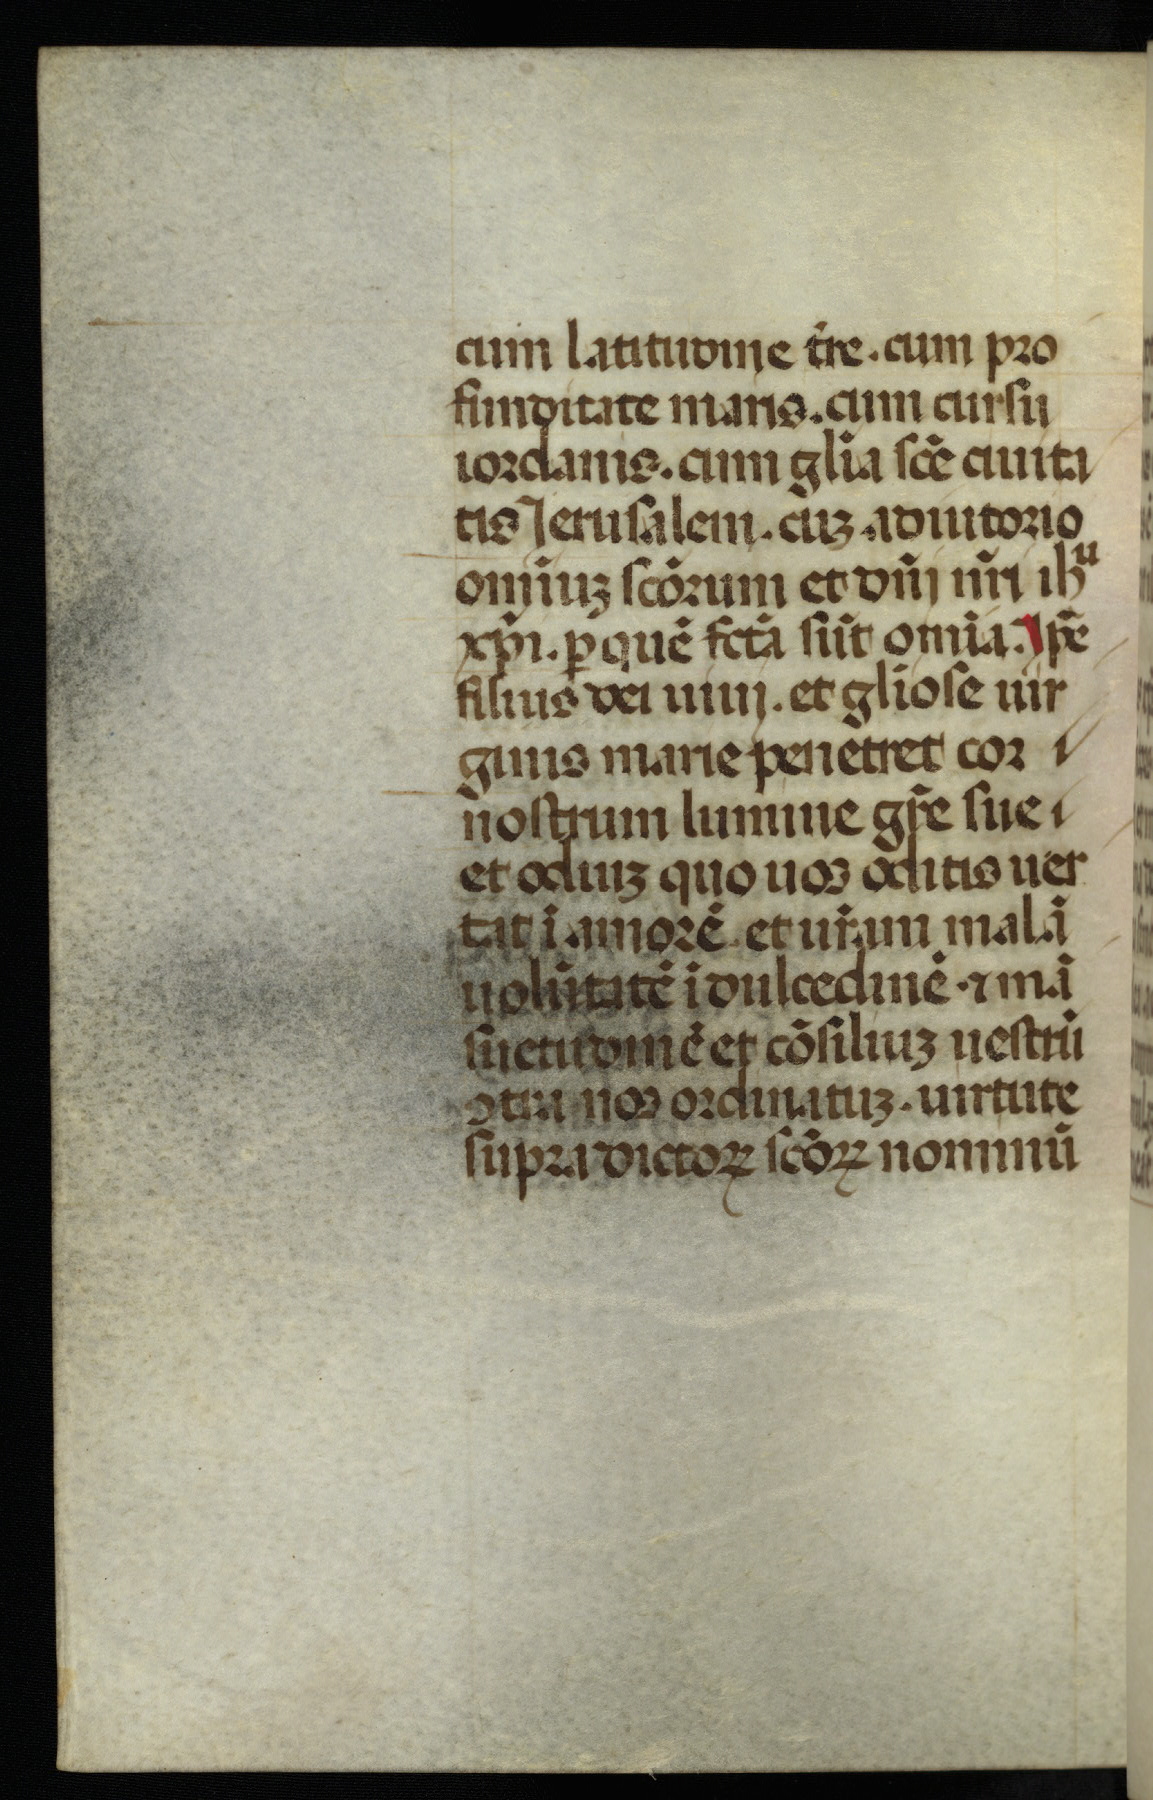 cum latitudine tr̄e. cum pro
funditate maris. cum cursu
iordanis. cum gl̄ia sc̄e ciuita
tis Jerusalem. cuꝫ adiutorio
om̄iuꝫ sc̄orum et dn̄j nr̄i ihu
xp̄i. ꝑ quē fct̄a sūt om̄ia. Ip̄e
filius dei uiuj. et gliose uir
ginis marie penetret cor
nostrum lumine gr̄e sue
et odiuꝫ quo uos oditis uer
tat ī amorē et ur̄am malā
uolūtatē ī dulcedinē ⁊ mā
suetudinē et cōsiliuꝫ uestrū
ꝯtra nos ordinatuꝫ. uirtute
supradictoꝝ sc̄oꝝ nominū